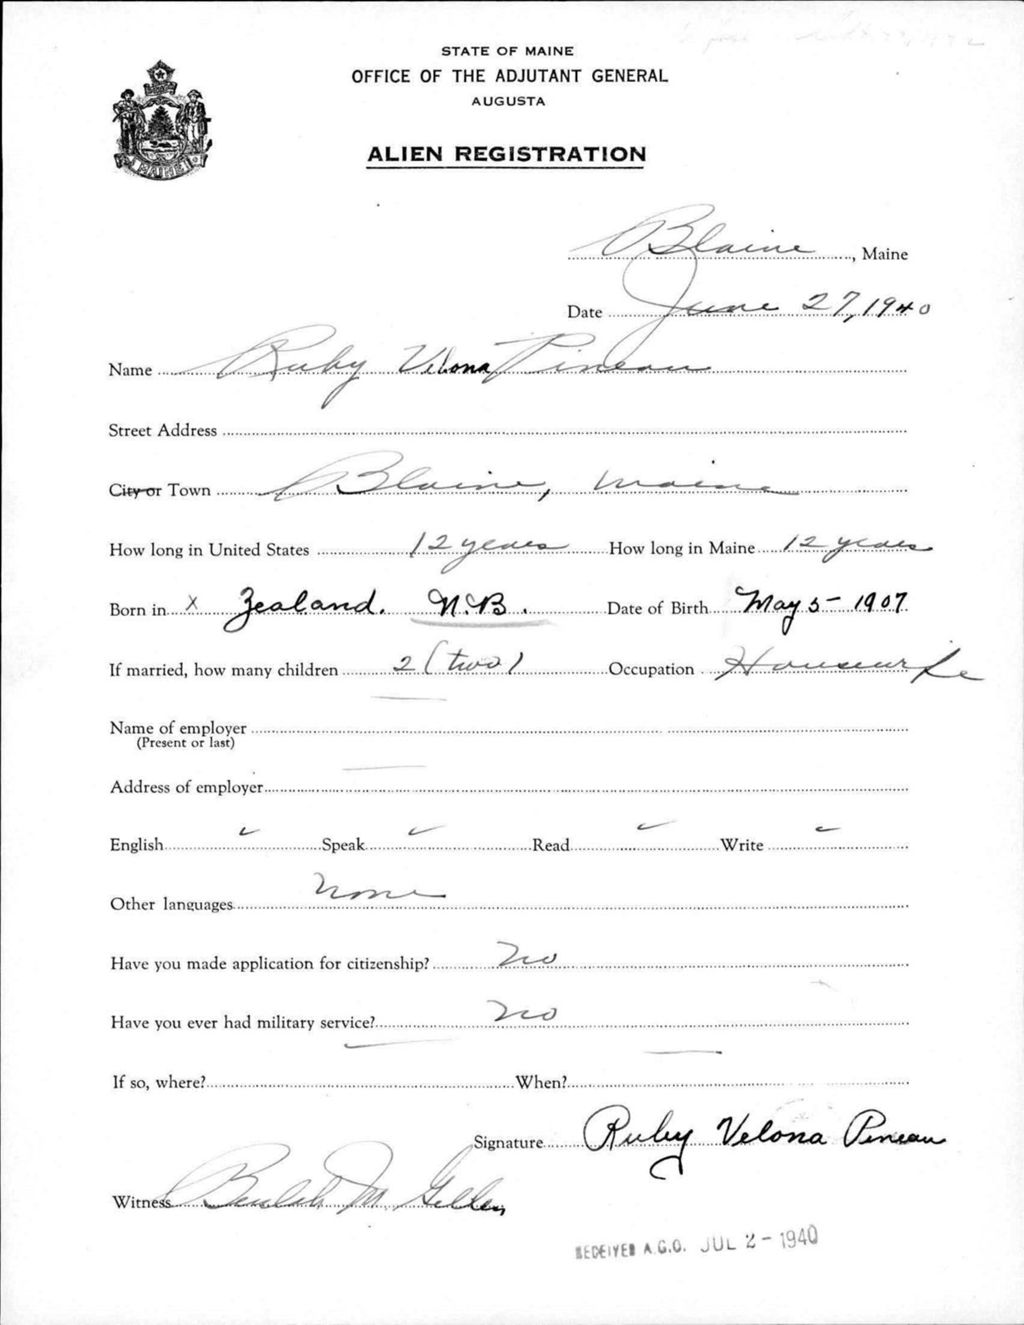 STATE OF MAINE
OFFICE OF THE ADJUTANT GENERAL
AUGUSTA
MAINE
ALIEN REGISTRATION
Blaine, Maine
Date June 27, 1940
Name Ruby Velona Pineau
Street Address
City or Town Blaine, Maine
How long in United States 12 years How long in Maine 12 years
Born in x Zealand. N.B. Date of Birth May 5 - 1907
If married, how many children 2 (two) Occupation Housewife
Name of employer
(Present or last)
Address of employer
English ✓ Speak ✓ Read ✓ Write ✓
Other languages none
Have you made application for citizenship? no
Have you ever had military service? no
If so, where? When?
Signature Ruby Velona Pineau
Witness Beulah M.
RECEIVED A.G.O. JUL 2 - 1940